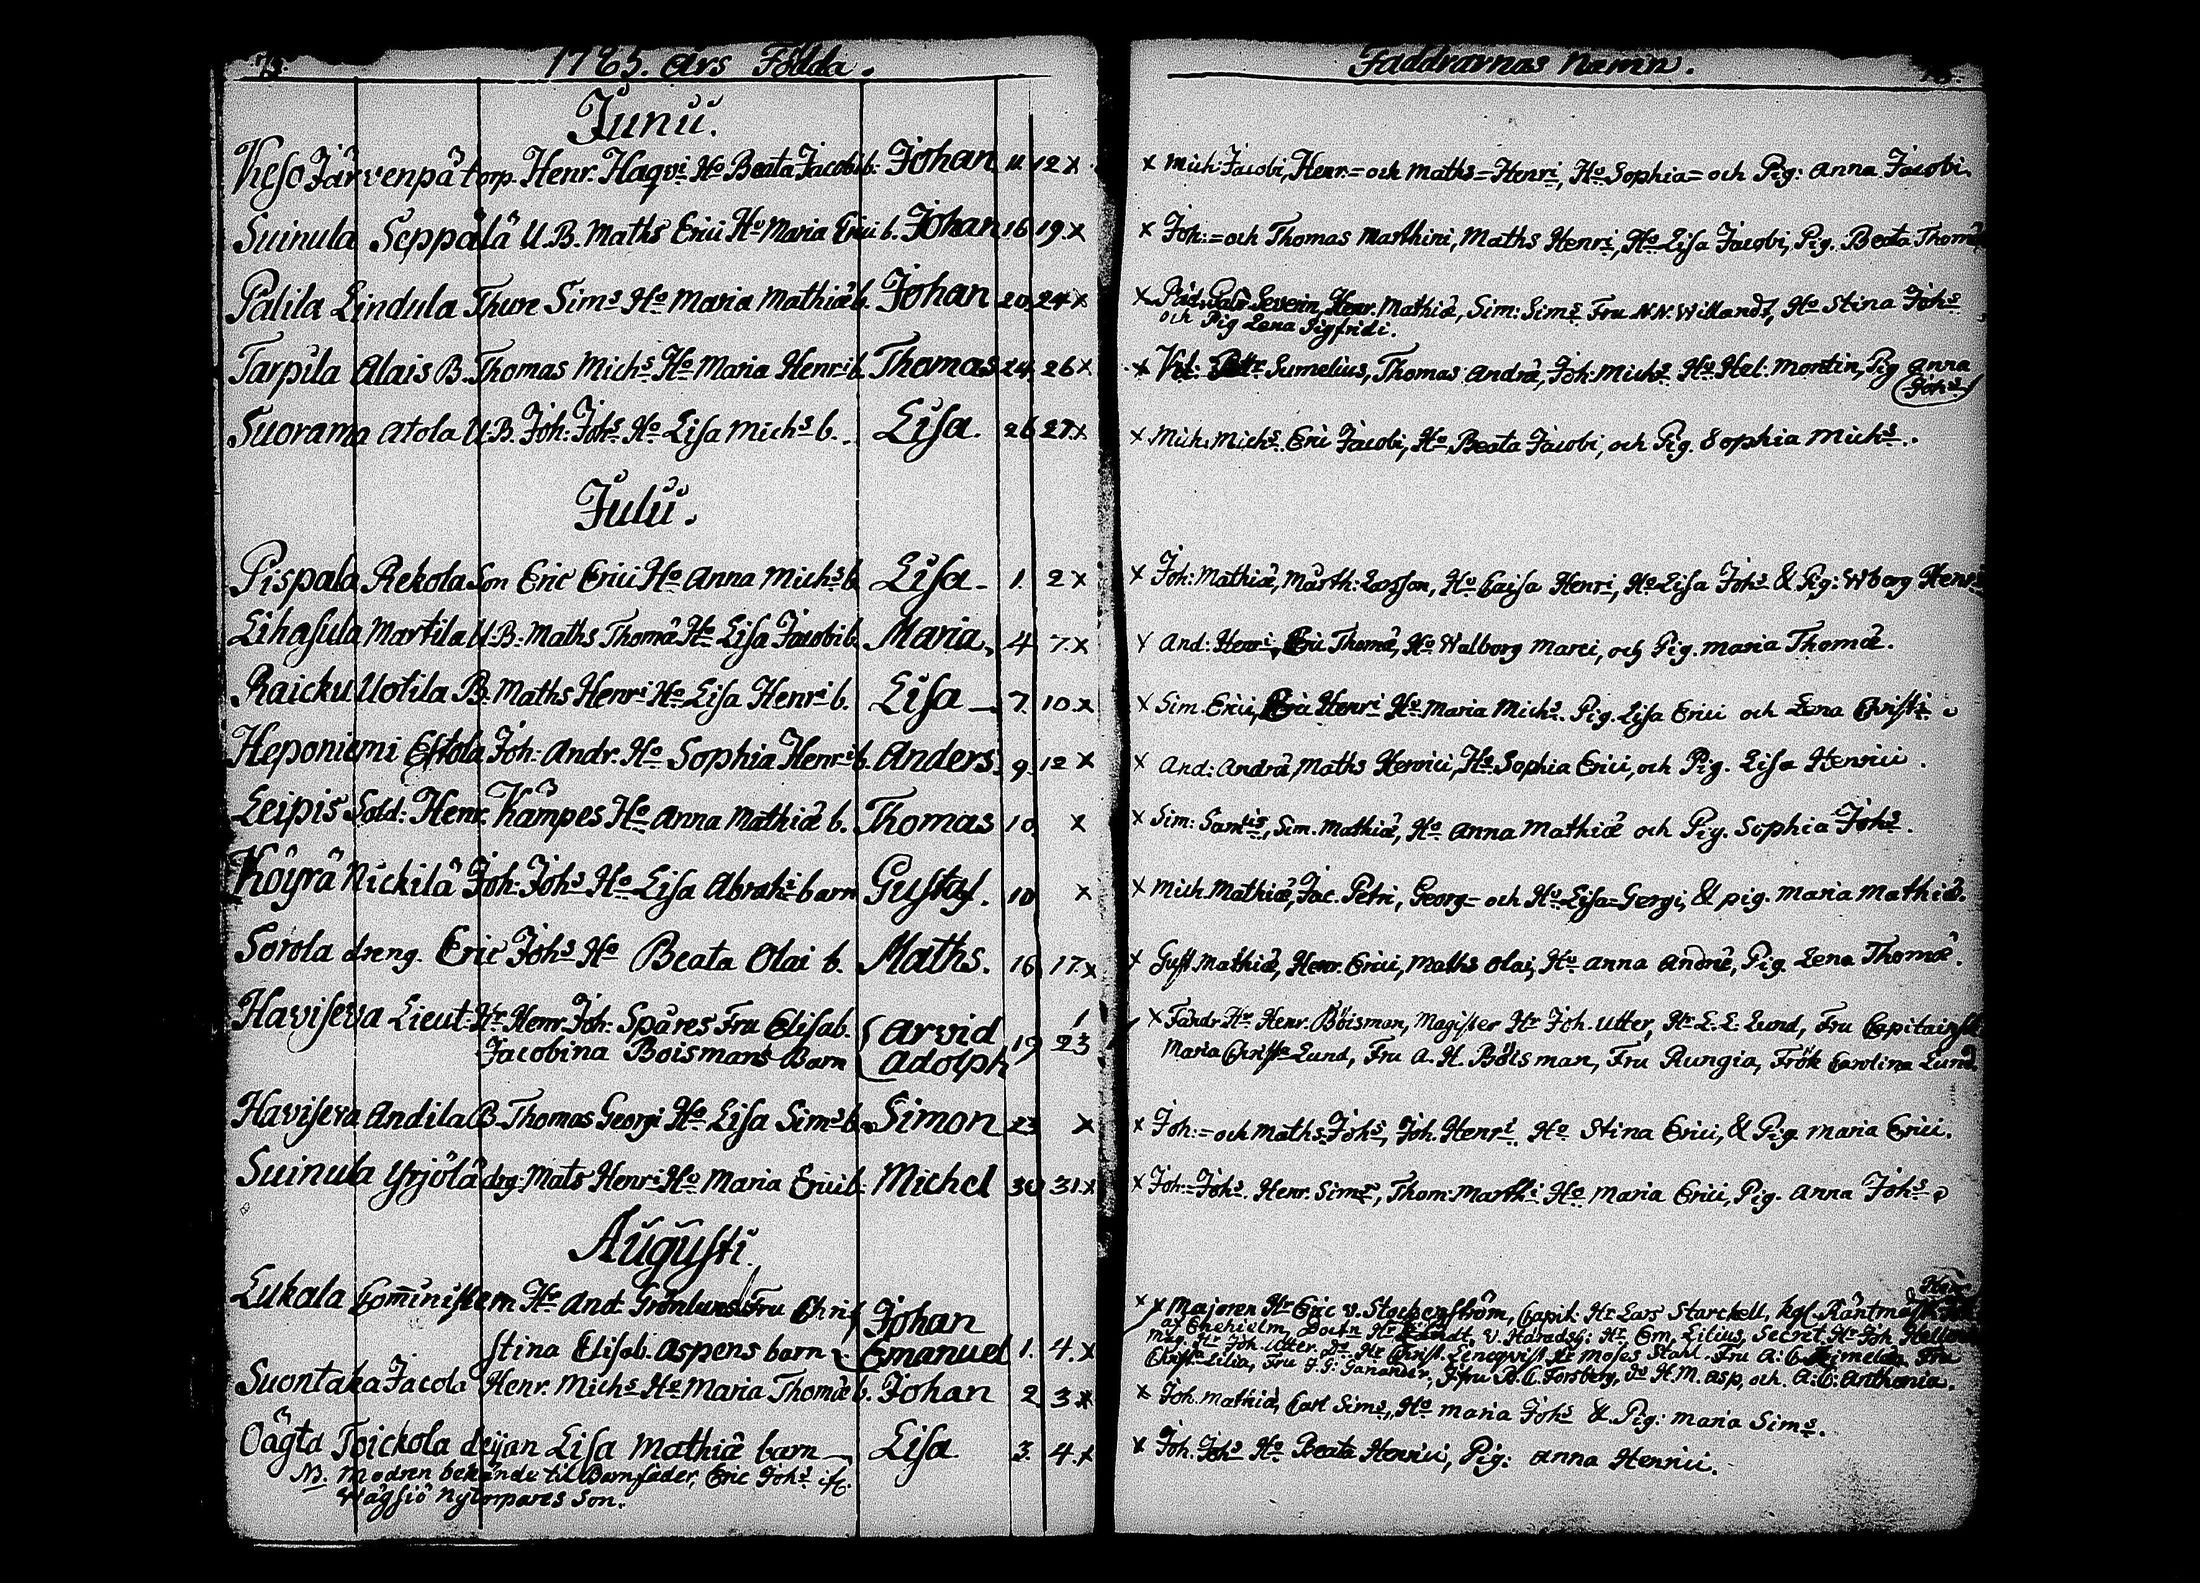 73. 1785. Års Födda.
Junii.
Keso Järvenpä torp. Henr. Haqvi Ho Beata Jacobi b: Johan 11. 12 x
Suinula Seppälä U.B. Maths Erici Ho Maria Erici b. Johan 16 19. x
Palila Lindula Thure Sims Ho Maria Mathiæ b. Johan 20. 24 x
Tarpila Alais B. Thomas Michs Ho Maria Henri b. Thomas 24. 26 x
Suorama Atola U.B. Joh: Johs Ho Lisa Michs b. Lisa. 26 27. x
Julii.
Pispala Rekola Son Eric Erici Ho Anna Michs b. Lisa 1. 2 x
Lihasula Martila U.B. Maths Thomæ Ho Lisa Jacobi b. Maria, 4. 7. x
Raicku Uotila B. Maths Henri Ho Lisa Henri b. Lisa 7. 10. x
Heponiemi Estola Joh: Andr. Ho Sophia Henri b. Anders. 9. 12 x
Leipis Sold: Henr. Kämpes Ho Anna Mathiæ b. Thomas 10 x
Köyrä Nickilä Joh: Johs Ho Lisa Abrahi barn Gustaf. 10 x
Sorola dreng. Eric Johs Ho Beata Olai b. Maths. 16. 17. x
Haviseva Lieut: Hr Henr. Joh: Spåres Fru Elisab. Arvid
Jacobina Boismans Barn Adolph 19 23
Haviseva Andila B. Thomas Georgi Ho Lisa Sims b. Simon 23 x
Suinula Yrjölä drg. Mats Henri Ho Maria Erici b. Michel 30 31. x
Augusti.
Lukala Com̄inistern Hr And. Grönlunds Fru Chris Johan
stina Elisab. Aspens barn Emanuel 1. 4. x
Suontaka Jacola Henr. Michs Ho Maria Thomæ b. Johan 2 3 x
Oägta Toickola deijan Lisa Mathiæ barn Lisa 3. 4. x
NB. Modren bekände til Barnfader, Eric Johs
Wägsiö Nytorpares Son.
Faddrarnas Namn.
x Mich: Jacobi, Henr= och Maths= Henri, Ho Sophia= och Pig: Anna Jacobi.
x Joh: = och Thomas Marthini, Maths Henri, Ho Lisa Jacobi, Pig. Beata Thomæ
x Severin, Henr. Mathiæ, Sim: Sims Fru N.N. Willandt, Ho Stina Johs
och Pig Lena Sigfridi.
x Sumelius, Thomas Andræ, Joh: Michs Ho Hel. Montin, Pig Anna
Johs
x Mich. Michs Eric Jacobi, Ho Beata Jacobi, och Pig. Sophia Michs.
x Joh: Mathiæ, Marth: Larsson, Ho Caisa Henri, Ho Lisa Johs & Pig: Wborg Henri
x And: Henri, Eric Thomæ, Ho Walborg Marci, och Pig. Maria Thomæ.
x Sim. Erici, Eric Henri Ho Maria Michs. Pig. Lisa Erici och Lena Christi
x And: Andræ, Maths Henrici, Ho Sophia Erici, och Pig. Lisa Henrici.
x Sim: Samlis, Sim. Mathiæ, Ho Anna Mathiæ och Pig. Sophia Johs.
x Mich. Mathiæ, Jac. Petri, Georg= och Ho Lisa= Georgi, & pig. Maria Mathiæ.
x Gust. Mathiæ, Henr. Erici, Maths Olai, Ho Anna Andræ, Pig. Lena Thomæ.
x Fändr. Hr Henr. Böisman, Magister Hr Joh. Utter, Hr L. E. Lund, Fru Capitainskn
Maria Christa Lund, Fru A. H. Böisman, Fru Rungia, Frök Carolina Lund.
x Joh: = och Maths Johs, Joh. Henri. Ho Stina Erici, & Pig. Maria Erici.
x Joh: Johs. Henr. Sims, Thom: Marthi Ho Maria Erici, Pig. Anna Johs
x Majoren Hr Eric v. Stockenström, Capit: Hr Lars Starckell, kgl. Räntmäst.
af Enehielm, Doctn Hr, V. Häradsh: Hr Em. Lilius, Secret. Hr Joh Hellen
Mag. Hr Joh. Utter. Do Hr Christ. Leneqvist Hr Moses Stahl. Fru A. C. Fru
Christ. Lilia, Fru J. G: Ganander, Jfru A. C. Forsberg, Do H. M. Asp, och A: C: Anthonia.
x Joh. Mathiæ, Carl Sims, Ho Maria Johs & Pig: Maria Sims.
x Joh. Johs Ho Beata Henrici, Pig: Anna Henrici.